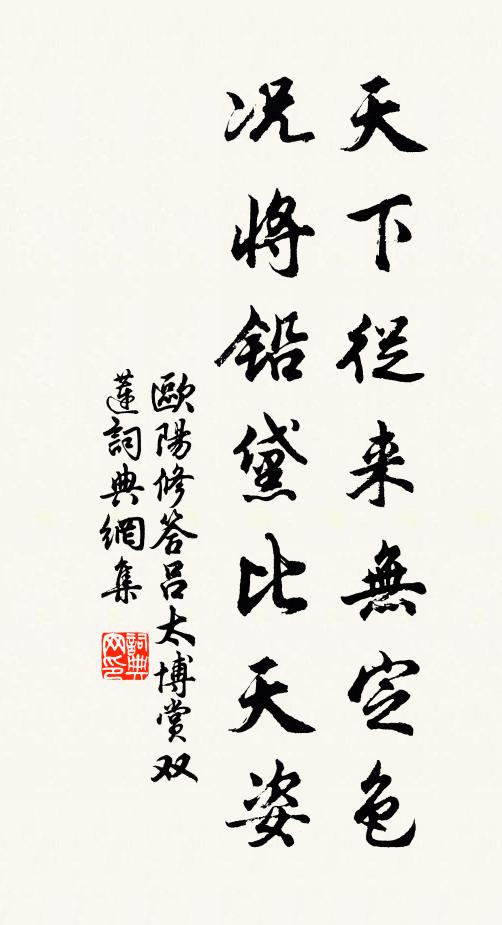 天下從来無定色
况將鉛黛比天姿
歐陽修答呂太博賞双
蓮詞典網集
詞典网印